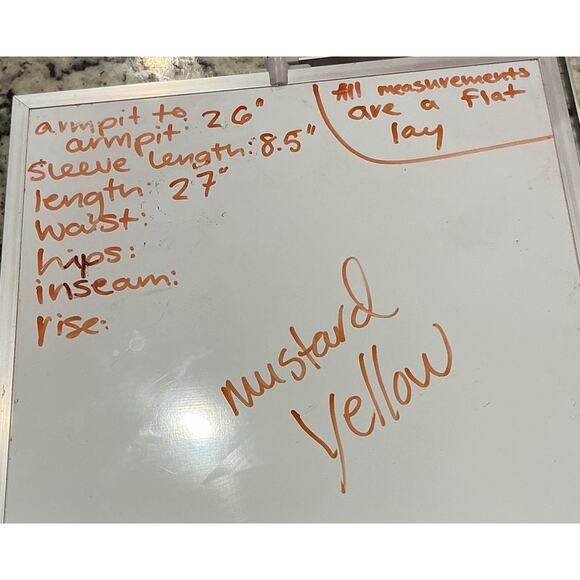 armpit to
armpit: 26"
sleeve length: 8.5"
length: 27"
waist:
hips:
inseam:
rise:
All measurements
are a flat
lay
mustard
yellow